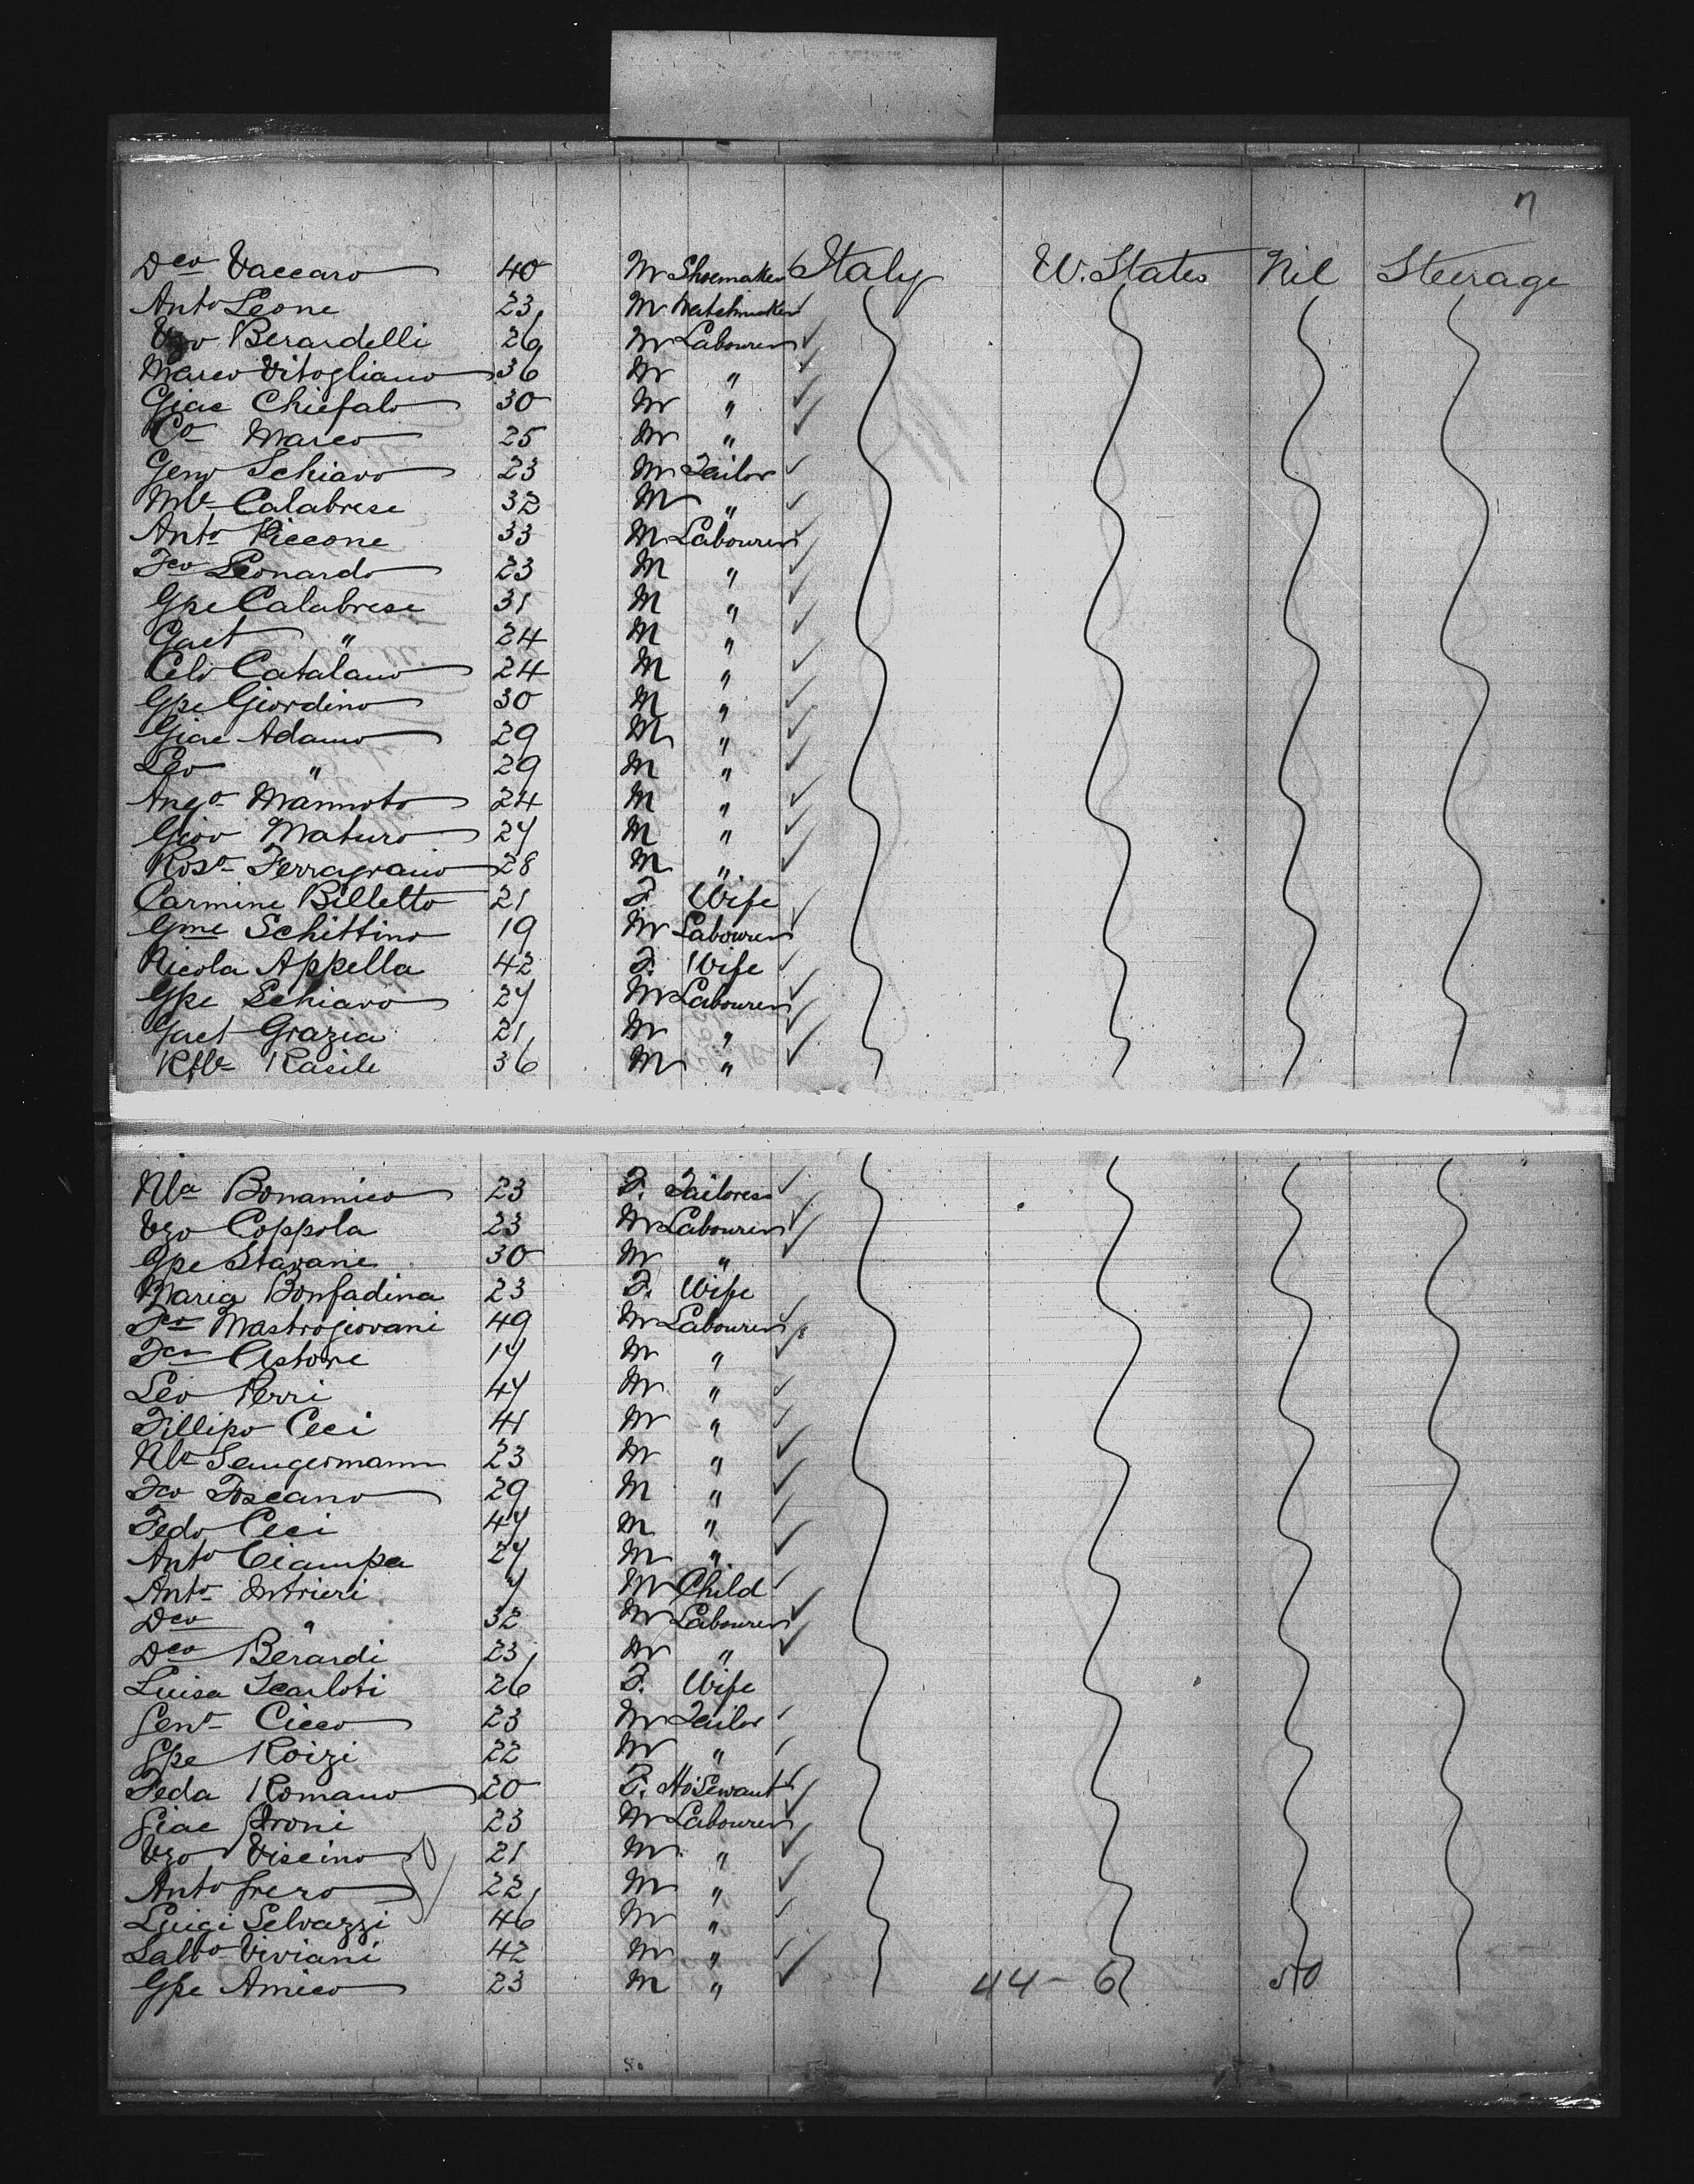 n
Dco Vaccaro 40 M Shoemaker Italy U. States Nil Steerage
Anto Leone 23 M Watchmaker
Vzo Berardelli 26 M Labourer
Marco Vitogliano 36 M "
Giac Chiefalo 30 M "
Co Marco 25 M "
Geno Schiavo 23 M Tailor
Mle Calabrese 32 M "
Anto Piccone 33 M Labourer
Fco Leonardo 23 M "
Gpe Calabrese 31 M "
Gaet " 24 M "
Celo Catalano 24 M "
Gpe Giordino 30 M "
Giac Adamo 29 M "
Leo " 29 M "
Ango Mannoto 24 M "
Giov Maturo 27 M "
Roso Ferragraino 28 M "
Carmine Billetto 21 F. Wife
Gme Schittino 19 M Labourer
Nicola Appella 42 F. Wife
Gpe Schiavo 27 M Labourer
Gaet Grazia 21 M "
Rfle Rasile 36 M "
Nla Bonamico 23 F. Tailoress
Vzo Coppola 23 M Labourer
Gpe Stavani 30 M "
Maria Bonfadina 23 F. Wife
Fco Mastrogiovani 49 M Labourer
Fco Astore 17 M "
Leo Perri 47 M "
Fillipo Ceci 41 M "
Nla Sangermann 23 M "
Fco Toscano 29 M "
Fedo Ceci 47 M "
Anto Ciampa 27 M "
Anto Intrieri 7 M Child
Dco " 32 M Labourer
Dco Berardi 23 M "
Luisa Scarloti 26 F. Wife
Geno Cicco 23 M Tailor
Gpe Roizi 22 M "
Feda Romano 20 F. HoServant
Giac Ironi 23 M Labourer
Vzo Viscino 21 M "
Anto Grezo 22 M "
Luigi Selvazzi 46 M "
Salvo Viviani 42 M "
Gpe Amico 23 M " 44 - 6 50